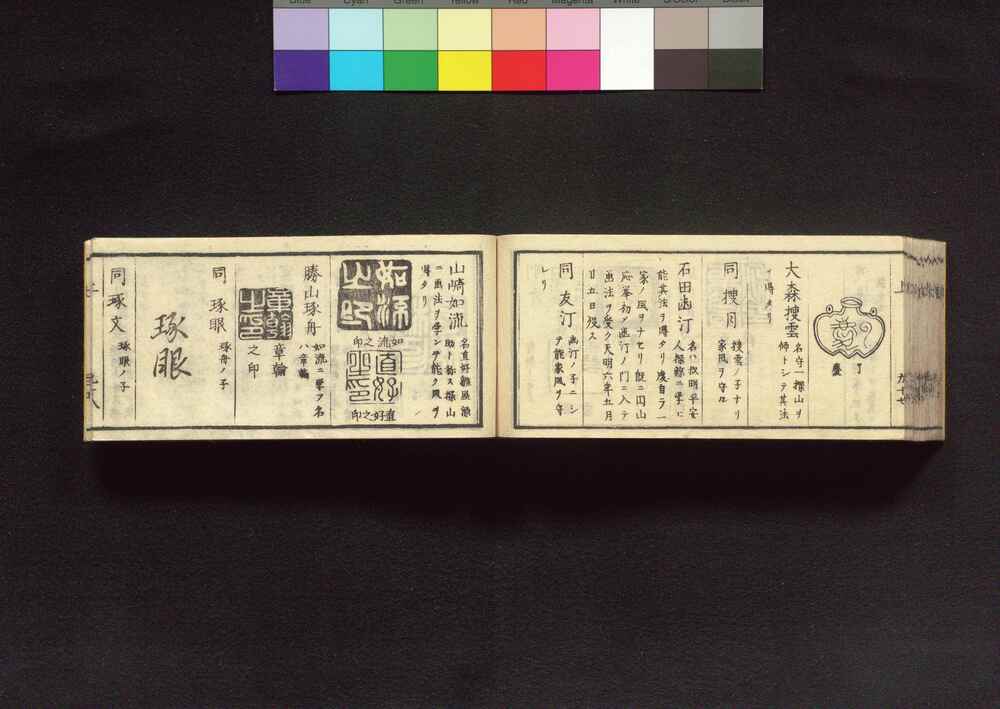 丁
慶
大森捜雲
名守一探山ヲ
師トシテ其法
ヲ得タリ
同捜月
捜雲ノ子ナリ
家風ヲ守ル
石田幽汀
名ハ守明平安
人探鯨ニ学ヒ
能其法ヲ得タリ後自ラ一
家ノ風ヲナセリ既ニ円山
応挙初メ幽汀ノ門ニ入テ
画法ヲ受ク天明六年五月
廿五日歿ス
同友汀
幽汀ノ子ニシ
テ能家風ヲ守
レリ
山崎如流
助ト称ス探山
ニ画法ヲ学ンテ能ク風ヲ
得タリ
如流之印
如流之印
直好之印
直好之印
勝山琢舟
如流ニ学フ名
ハ章翰
章翰之印
章翰之印
同琢眼
琢舟ノ子
琢眼
同琢文
琢眼ノ子